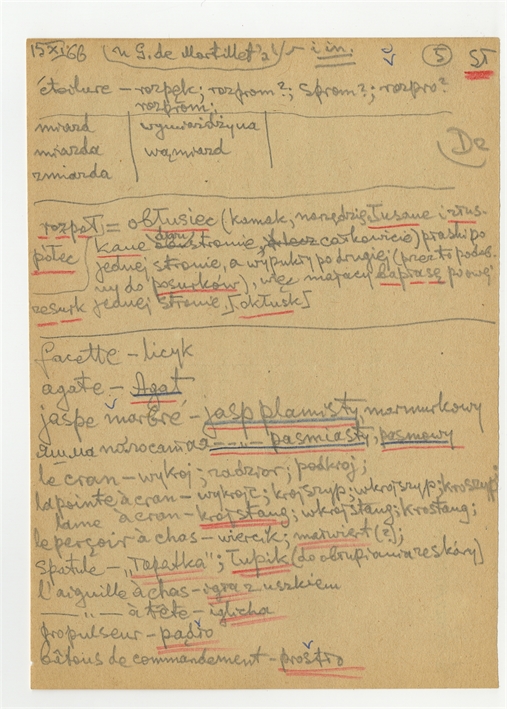 15 XI 66 (u G. de Mortillet'a) i in. 5 ST
étoilure – rozpęk; rozprom?; sprom?; rozpro?
rozprom;
miazd wymiażdżyna
miazda wąmiazd De
zmiazda
rozpoł = obłusiec (kamak, narzędzie łusane i
kane stronie, całkowicie) płaski po
połec jednej stronie, a wypukły po drugiej (przeto podob-
ny do posurków), więc mający po swej
zesurk jednej stronie. [okłusk]
facette – licyk
agate – Agat
jaspe marbré – jasp plamisty, marmurkowy
яшма полосатая – – pasmiasty, pasmowy
le cran – wykroj; zadzior; podkroj;
la pointe à cran – wykrojc; krojszyp; wkrojszyp; kroszyp;
lame à cran – krojstang; wkrojstang; krostang;
le perçoir à chas – wiercik; marwiert (?);
Spatule – "Topatka"; Łupik (do obłupiania ze skóry)
l'aiguille à chas – igra z uszkiem
–„– à tête – iglicha
propulseur – pądło
bâtons de commandement – prostro